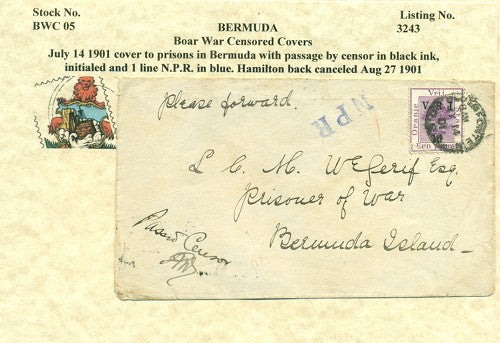 Stock No.
BWC 05
BERMUDA
Listing No.
3243
Boar War Censored Covers
July 14 1901 cover to prisons in Bermuda with passage by censor in black ink,
initialed and 1 line N.P.R. in blue. Hamilton back canceled Aug 27 1901
Please forward.
NPR
Vrij
V.R.I.
Oranje
Een
L. C. M. WEGerif Esq.
Prisoner of War
Bermuda Island
Passed Censor